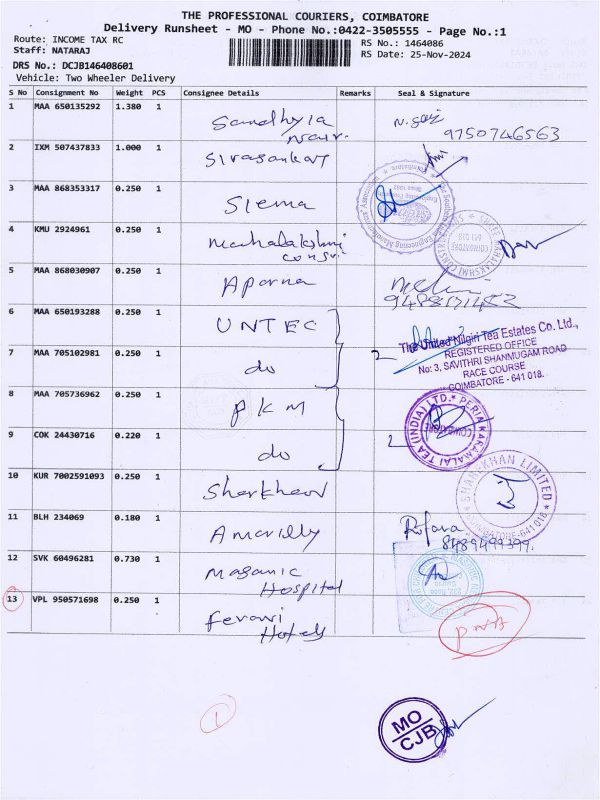 THE PROFESSIONAL COURIERS, COIMBATORE
Delivery Runsheet - MO - Phone No.:0422-3505555 - Page No.:1
Route: INCOME TAX RC
Staff: NATARAJ
RS No.: 1464086
RS Date: 25-Nov-2024
DRS No.: DCJB146408601
Vehicle: Two Wheeler Delivery
S No Consignment No Weight PCS Consignee Details Remarks Seal & Signature
1 MAA 650135292 1.380 1 Sandhyia
Nair. 9750746563
2 IXM 507437833 1.000 1 Sivasankar
3 MAA 868353317 0.250 1 Siema
4 KMU 2924961 0.250 1 Mahalakshmi
SHREE MAHALAKSHMI CONSTRUCTIONS
COIMBATORE
641 018
5 MAA 868030907 0.250 1 Aparna
6 MAA 650193288 0.250 1 UNTEC
7 MAA 705102981 0.250 1 do 2
The United Nilgiri Tea Estates Co. Ltd.,
REGISTERED OFFICE
No: 3, SAVITHRI SHANMUGAM ROAD
RACE COURSE
COIMBATORE - 641 018.
8 MAA 705736962 0.250 1 PKM
9 COK 24430716 0.220 1 do 2
PERIA KARAMALAI TEA (INDIA) LTD.
COIMBATORE
10 KUR 7002591093 0.250 1 Sharkhan
SHARKHAN LIMITED
COIMBATORE-641 018
11 BLH 234069 0.180 1
8489499399.
12 SVK 60496281 0.730 1 Masanic
Hospital
13 VPL 950571698 0.250 1 Ferari
Hotels
1
MO
CJB